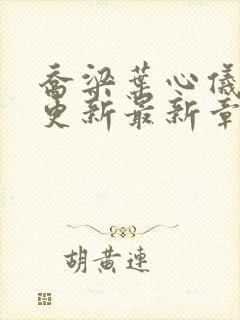 乔梁葉心儀
更新最新章
胡黄连